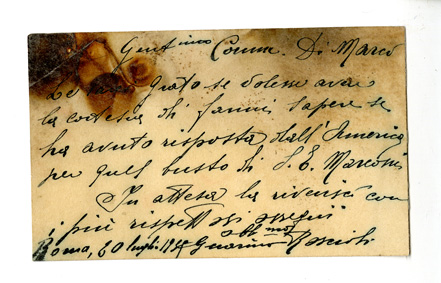 Gent.imo Comm. Di Marco
Le sarei grato se volesse aver
la cortesia di farmi sapere se
ha avuto risposta dall'America
per quel busto di S. E. Marconi
In attesa la riverisco con
i più rispettosi ossequi
obb.mo
Roma, 20 luglio 19 Guarino Roscioli